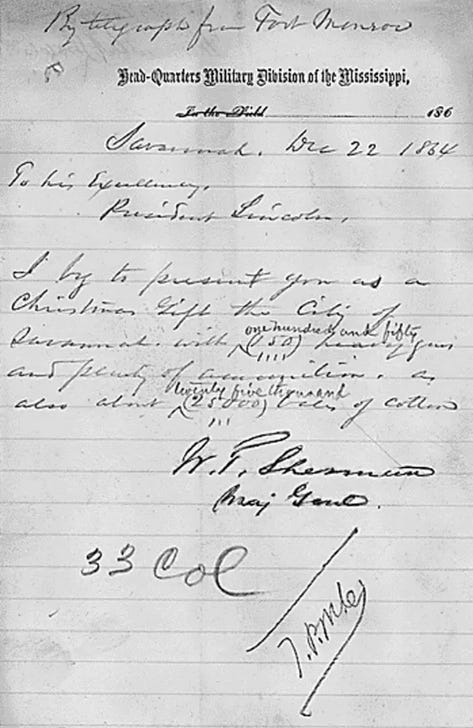 By telegraph from Fort Monroe
Head-Quarters Military Division of the Mississippi,
In the Field 186
Savannah. Dec 22 1864
To his Excellency,
President Lincoln.
I beg to present you as a
Christmas Gift the City of
one hundred and fifty
Savannah. with (150) heavy guns
and plenty of ammunition. as
twenty five thousand
also about (25.000) bales of cotton
W. T. Sherman
Maj Genl.
33 Col